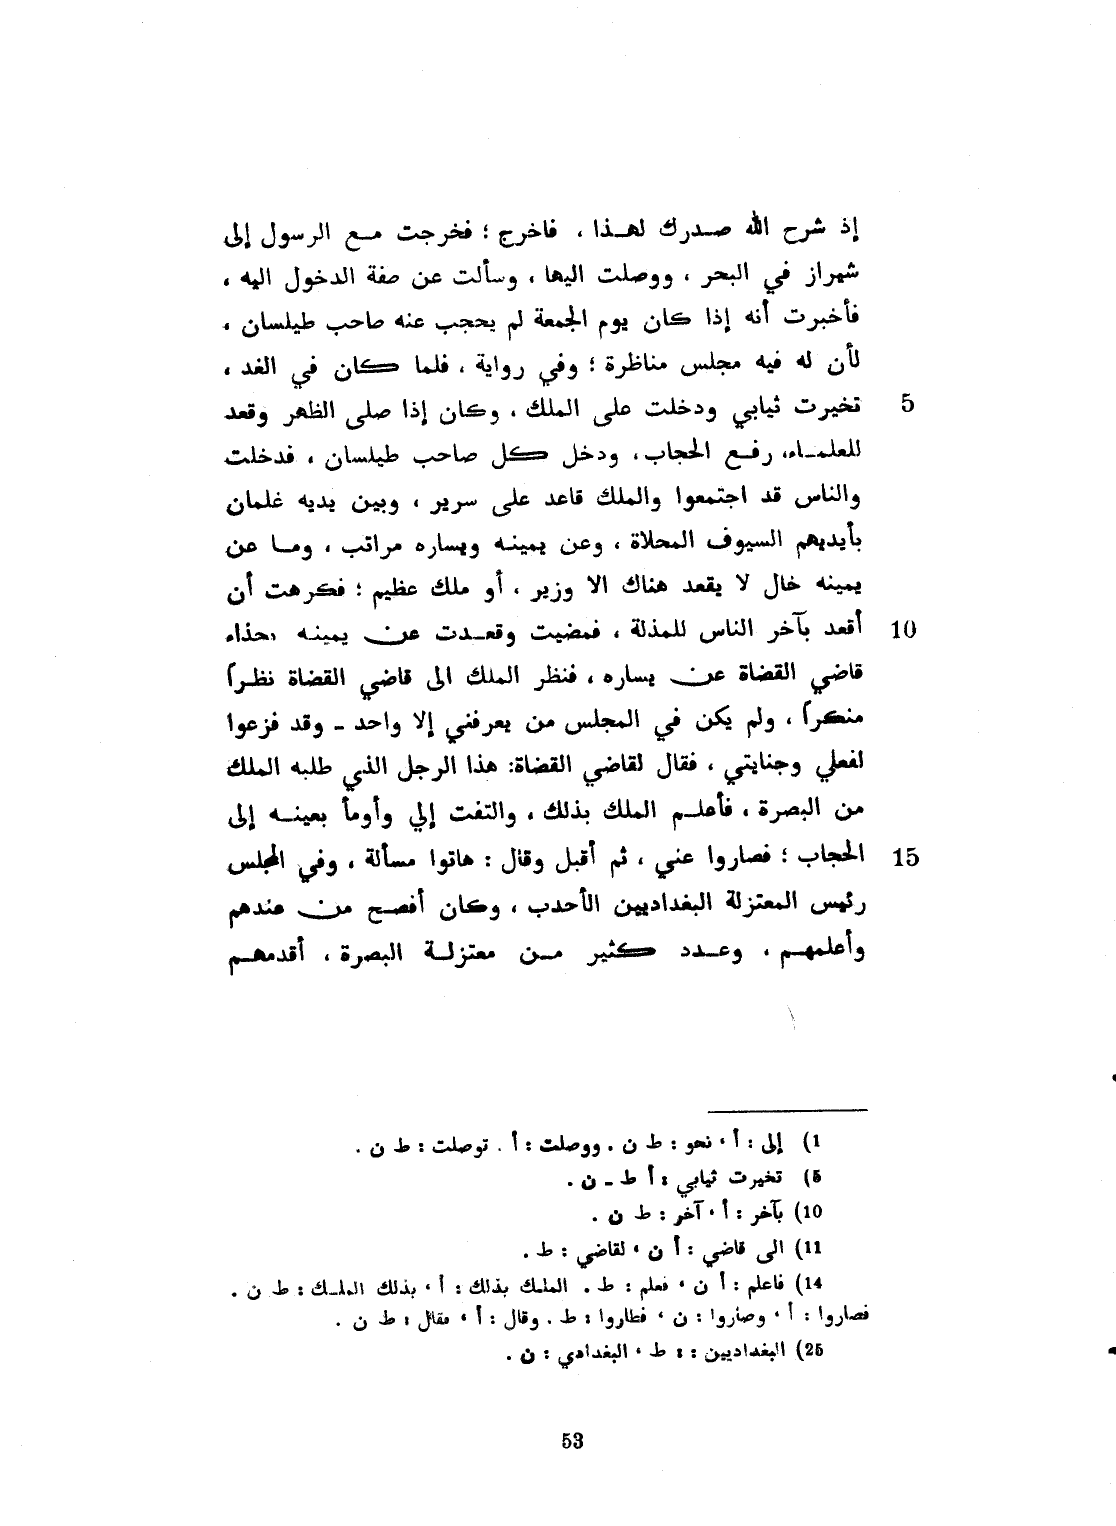 إذ شرح الله صدرك لهذا ، فاخرج ؛ فخرجت مع الرسول إلى
شيراز في البحر ، ووصلت اليها ، وسألت عن صفة الدخول اليه ،
فأخبرت أنه إذا كان يوم الجمعة لم يحجب عنه صاحب طيلسان ،
لأن له فيه مجلس مناظرة ؛ وفي رواية ، فلما كان في الغد ،
تخيرت ثيابي ودخلت على الملك ، وكان إذا صلى الظهر وقعد 5
للعلماء، رفع الحجاب، ودخل كل صاحب طيلسان ، فدخلت
والناس قد اجتمعوا والملك قاعد على سرير ، وبين يديه غلمان
بأيديهم السيوف المحلاة ، وعن يمينه ويساره مراتب ، وما عن
يمينه خال لا يقعد هناك الا وزير ، أو ملك عظيم ؛ فكرهت أن
أقعد بآخر الناس للمذلة ، فمضيت وقعدت عن يمينه حذاء 10
قاضي القضاة عن يساره ، فنظر الملك الى قاضي القضاة نظراً
منكراً ، ولم يكن في المجلس من يعرفني إلا واحد - وقد فزعوا
لفعلي وجنايتي ، فقال لقاضي القضاة: هذا الرجل الذي طلبه الملك
من البصرة ، فأعلم الملك بذلك ، والتفت إلي وأومأ بعينه إلى
الحجاب ؛ فصاروا عني ، ثم أقبل وقال : هاتوا مسألة ، وفي المجلس 15
رئيس المعتزلة البغداديين الأحدب ، وكان أفصح من عندهم
وأعلمهم ، وعدد كثير من معتزلة البصرة ، أقدمهم
1) إلى : أ ، نحو : ط ن . ووصلت : أ . توصلت : ط ن .
5) تخيرت ثيابي : أ ط - ن .
10) بآخر : أ ، آخر : ط ن .
11) الى قاضي : أ ن ، لقاضي : ط .
14) فاعلم : أ ن ، فعلم : ط . الملك بذلك : أ ، بذلك الملك : ط ن .
فصاروا : أ ، وصاروا : ن ، فطاروا : ط . وقال : أ ، فقال : ط ن .
25) البغداديين : : ط ، البغدادي : ن .
53